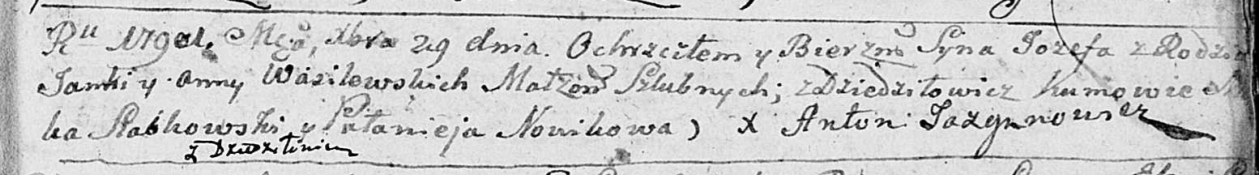 Ru 17901. Mca, Xbra 29 dnia. Ochrzciłem y Bierzmo Syna Jozefa z Rodzo
Janki y Anny Wasilewskich Małżon Szlubnych; z Dziedziłowicz Kumowie
ka Słabkowski y Pałanieja Nowikowa) X Anton Jazgunowicz
z Dziedziłowicz